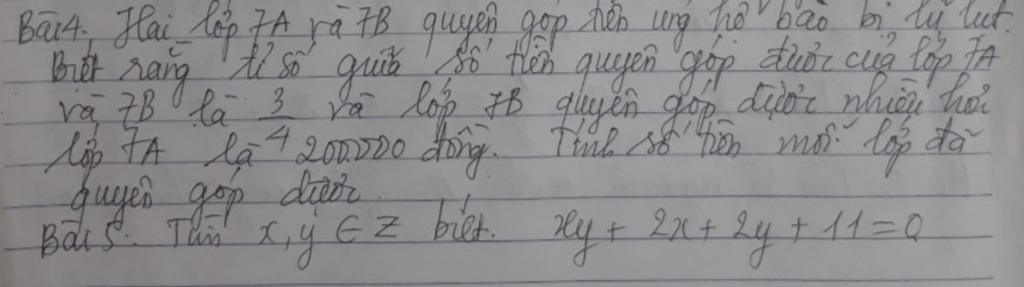 Bài 4. Hai lớp 7A và 7B quyên góp tiền ủng hộ bão bị lũ lụt.
Biết rằng tỉ số giữa số tiền quyên góp được của lớp 7A
và 7B là 3/4 và lớp 7B quyên góp được nhiều hơn
lớp 7A là 200.000 đồng. Tính số tiền mỗi lớp đã
quyên góp được.
Bài 5. Tìm x, y ∈ Z biết. xy + 2x + 2y + 11 = 0